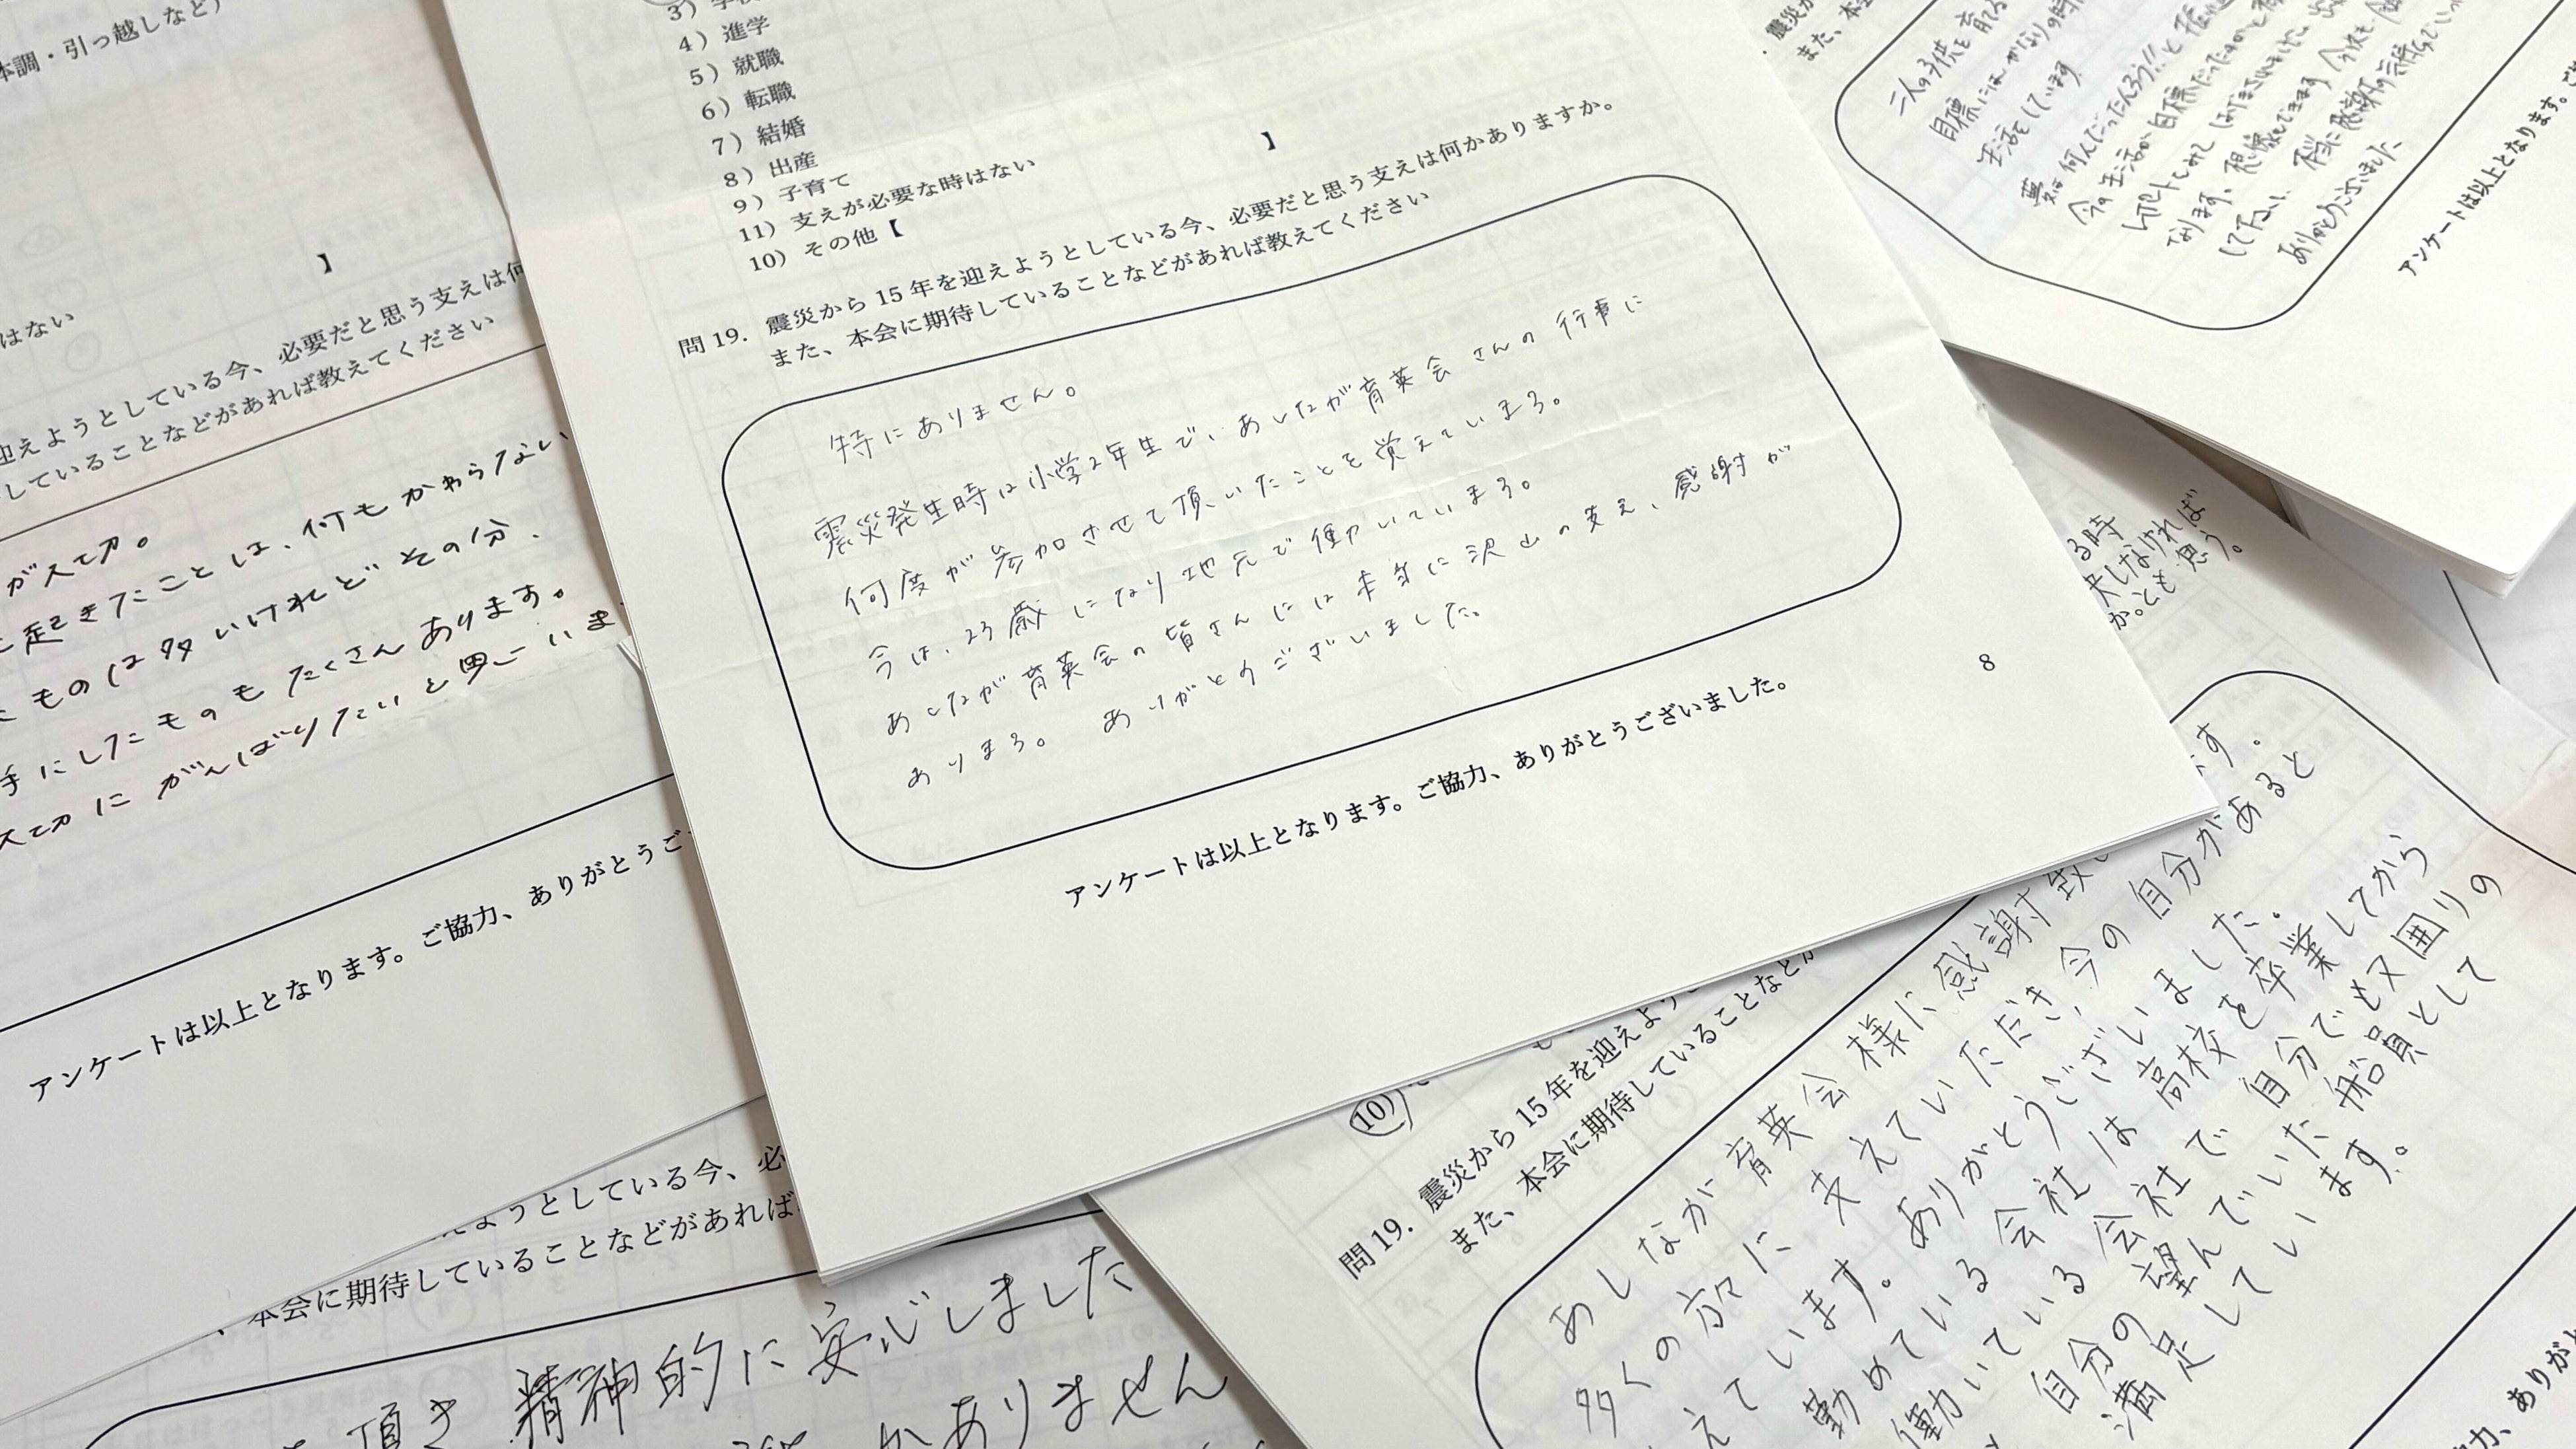 本調・引っ越しなど)
】
はない
迎えようとしている今、必要だと思う支えは何
していることなどがあれば教えてください
がスで力。
起きたことは、何もかわらない
ものは多いけれど その分、
手にしたものもたくさんあります。
に がんばりたいと思っていま
アンケートは以上となります。ご協力、ありがとうご
4）進学
5）就職
6）転職
7）結婚
8）出産
9）子育て
11）支えが必要な時はない
10）その他【 】
問 19. 震災から 15 年を迎えようとしている今、必要だと思う支えは何かありますか。
また、本会に期待していることなどがあれば教えてください
特にありません。
震災発生時は小学2年生で、あしなが育英会さんの行事に
何度か参加させて頂いたことを覚えています。
今は、23歳になり地元で働いています。
あしなが育英会の皆さんには本当に沢山の支え、感謝が
あります。 ありがとうございました。
アンケートは以上となります。ご協力、ありがとうございました。
8
震災か
また、本
二人の子供を育てる
目標にはかなりの時
生活をしています
夢は何んだったんだろう!!と
今の生活が目標だったのかと
なります。
して下さい。 本当に感謝の気持
ありがとうございました
アンケートは以上となります。ご
る時
夫しなければ
かとも思う。
ようとしている今、必
、本会に期待していることなどがあれば
頂き 精神的に安心しました
かありません
10)
問 19. 震災から 15 年を迎えよう
また、本会に期待していることなどが
ます。
あしなが育英会様に感謝致
多くの方々に支えていただき、今の自分があると
えています。ありがとうございました。
勤めている会社は高校を卒業してから
働いている会社で 自分でも又囲りの
自分の望んでいた船員として
満足しています。
力、ありがと